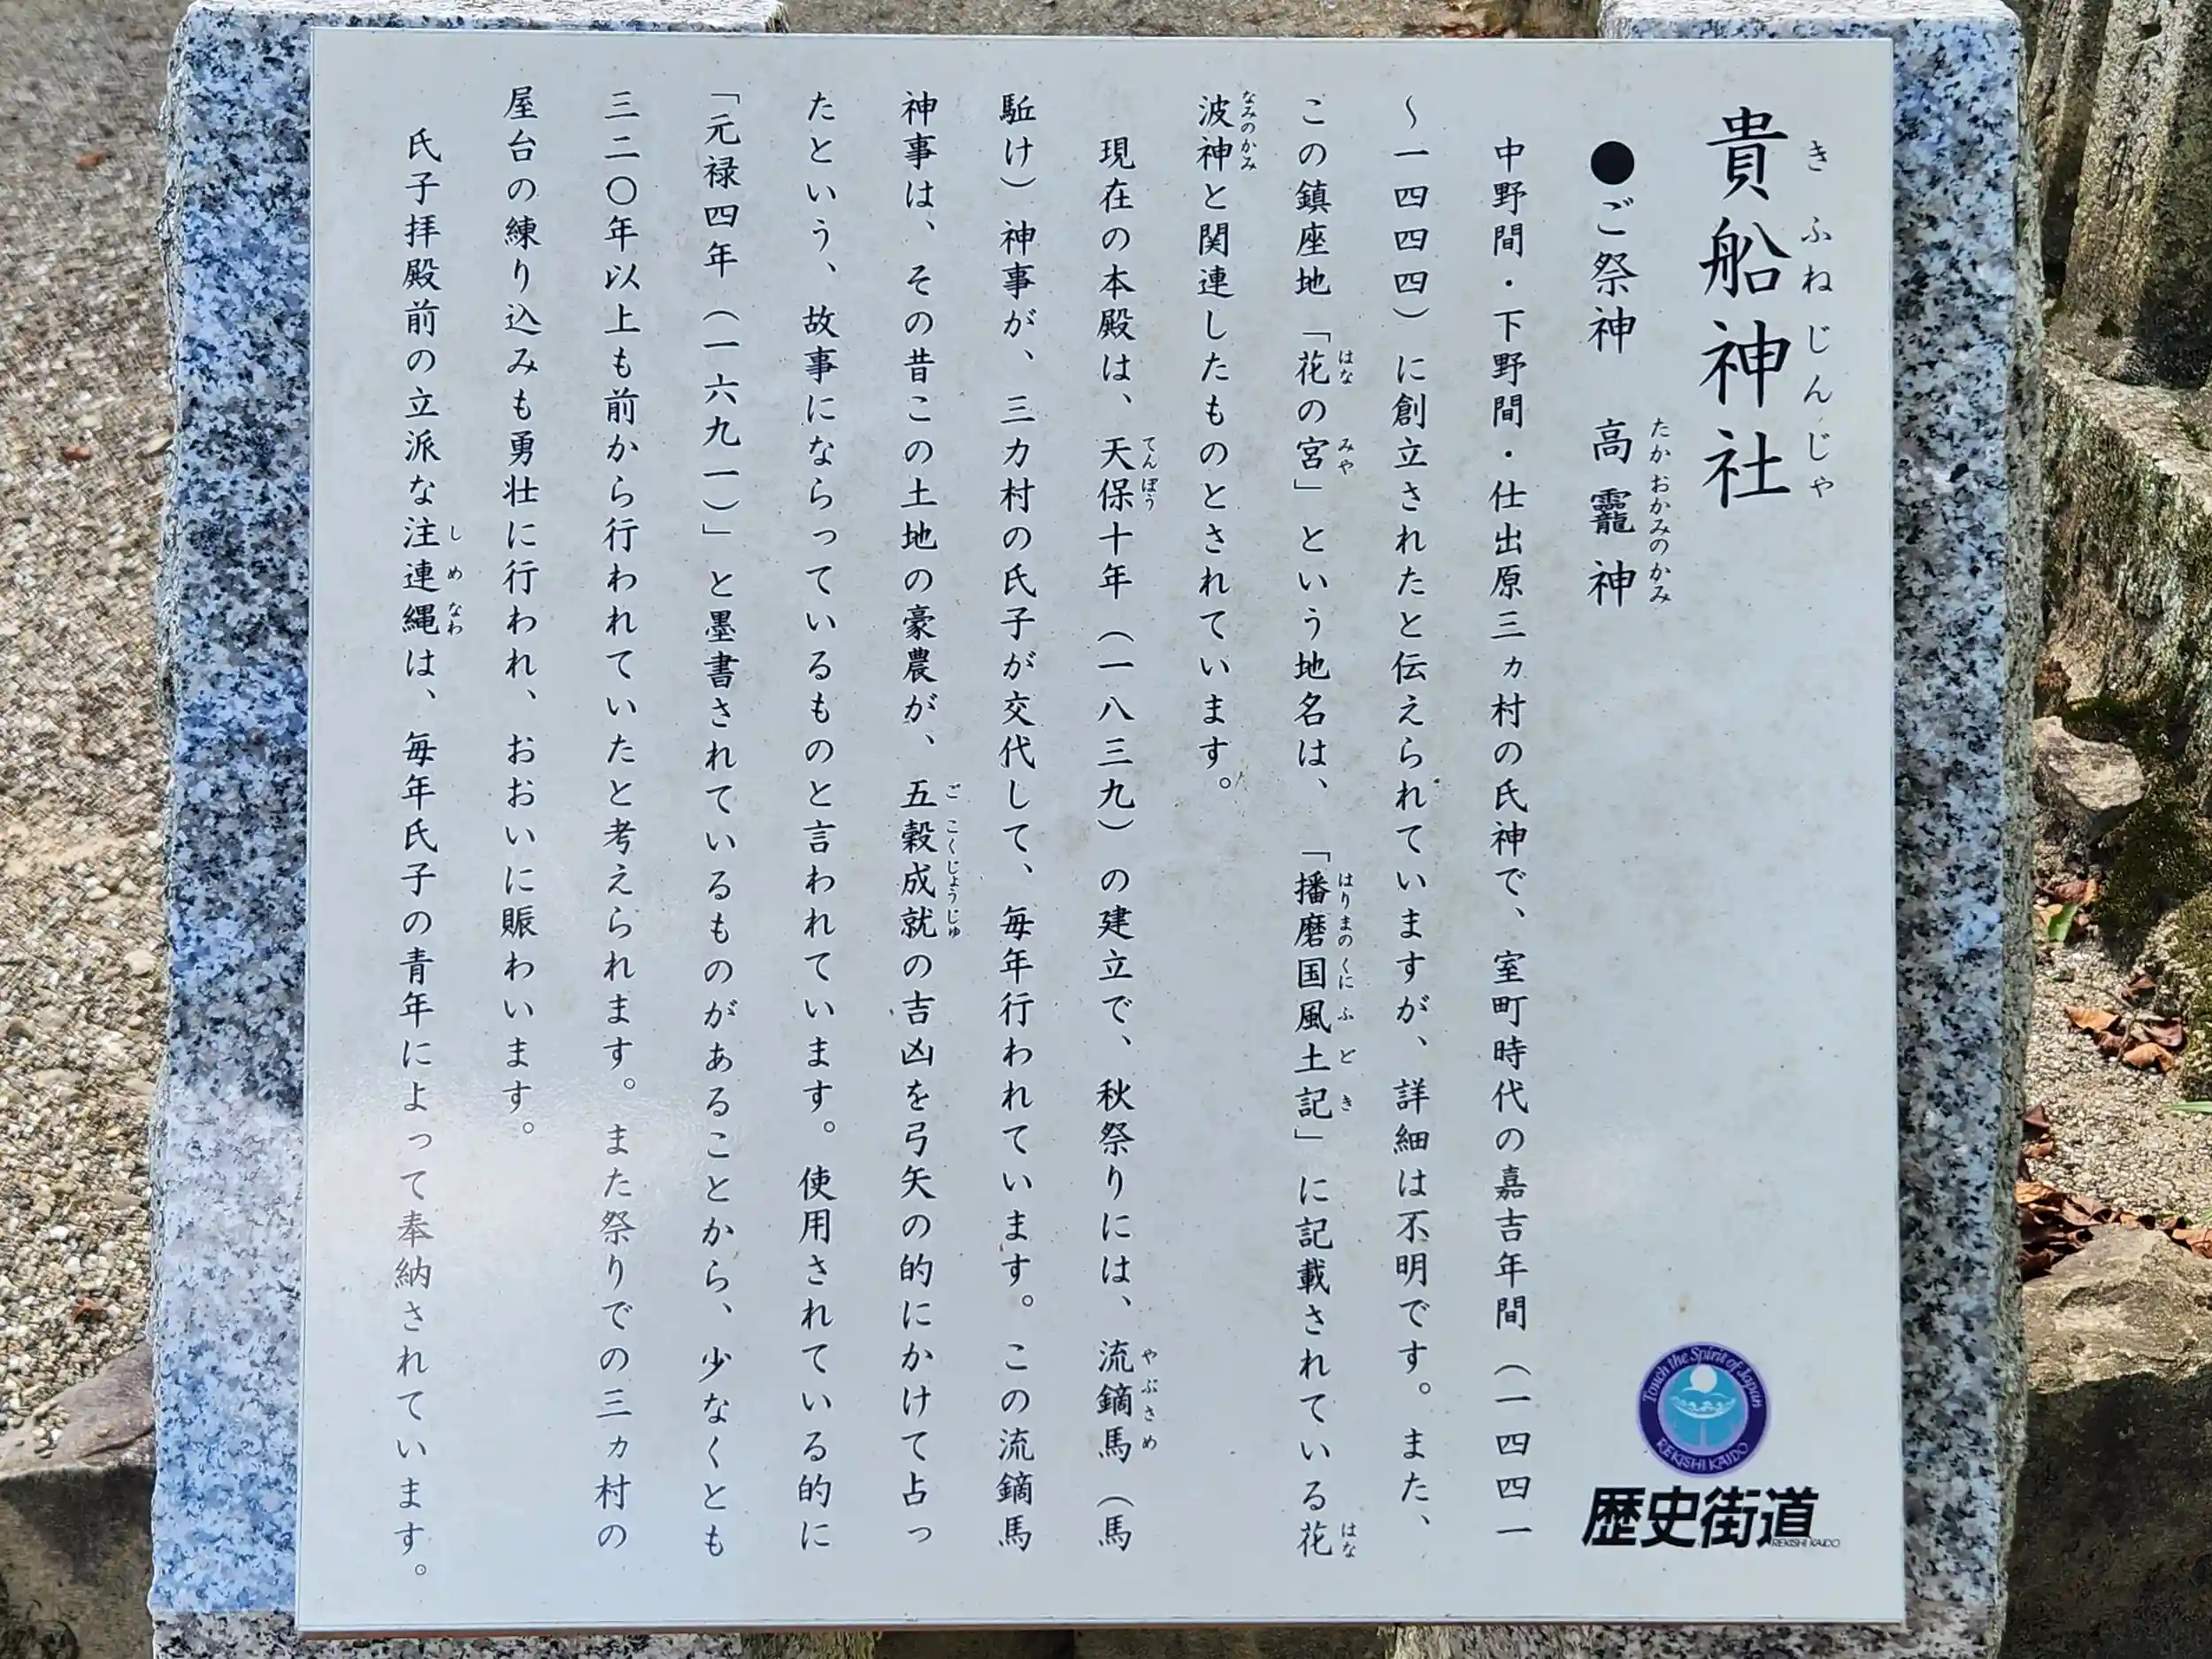 貴船神社
きふねじんじゃ
●ご祭神　高龗神
たかおかみのかみ
中野間・下野間・仕出原三ヵ村の氏神で、室町時代の嘉吉年間（一四四一
～一四四四）に創立されたと伝えられていますが、詳細は不明です。また、
この鎮座地「花の宮」という地名は、「播磨国風土記」に記載されている花
はな　みや　はりまのくにふどき　はな
波神と関連したものとされています。
なみのかみ
現在の本殿は、天保十年（一八三九）の建立で、秋祭りには、流鏑馬（馬
てんぽう　やぶさめ
駈け）神事が、三カ村の氏子が交代して、毎年行われています。この流鏑馬
神事は、その昔この土地の豪農が、五穀成就の吉凶を弓矢の的にかけて占っ
ごこくじょうじゅ
たという、故事にならっているものと言われています。使用されている的に
「元禄四年（一六九一）」と墨書されているものがあることから、少なくとも
三二〇年以上も前から行われていたと考えられます。また祭りでの三ヵ村の
屋台の練り込みも勇壮に行われ、おおいに賑わいます。
氏子拝殿前の立派な注連縄は、毎年氏子の青年によって奉納されています。
しめなわ
Touch the Spirit of Japan
REKISHI KAIDO
歴史街道
REKISHI KAIDO